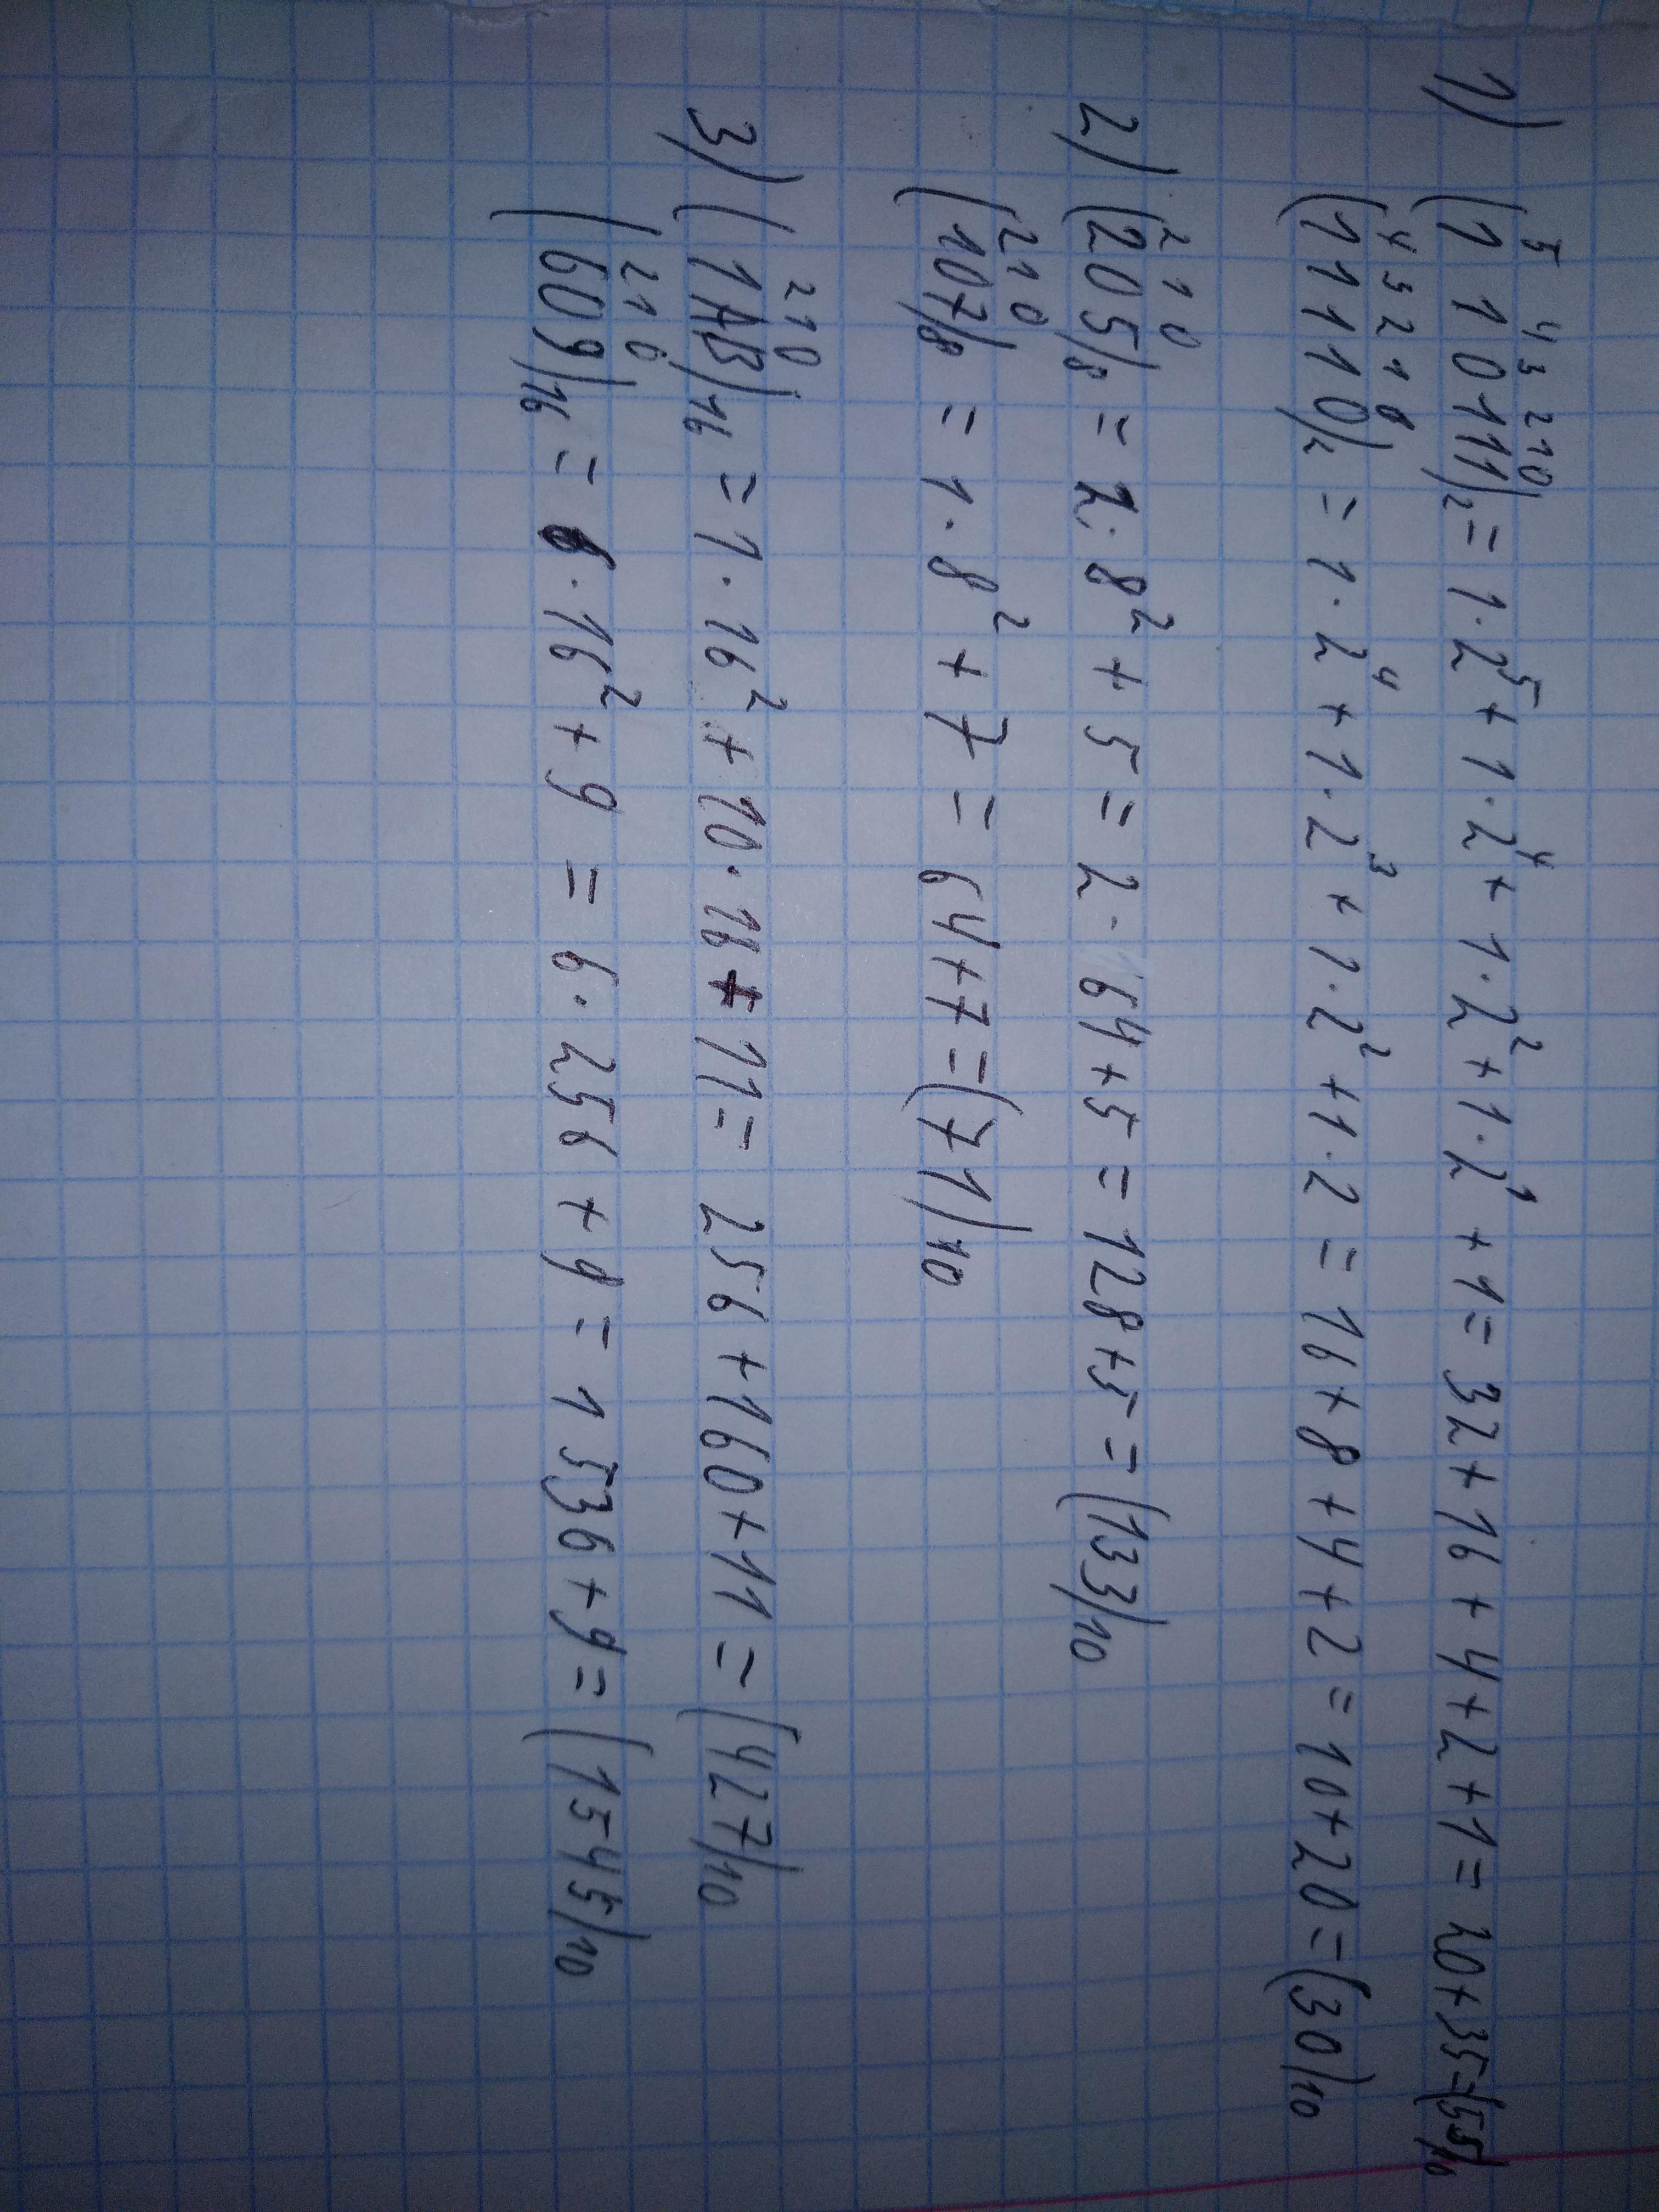 1) (1 1 0 1 1 1)₂ = 1·2⁵ + 1·2⁴ + 1·2² + 1·2¹ + 1 = 32 + 16 + 4 + 2 + 1 = 20 + 35 = (55)₁₀
5 4 3 2 1 0
(1 1 1 1 0)₂ = 1·2⁴ + 1·2³ + 1·2² + 1·2 = 16 + 8 + 4 + 2 = 10 + 20 = (30)₁₀
4 3 2 1 0
2) (205)₈ = 2·8² + 5 = 2·64 + 5 = 128 + 5 = (133)₁₀
2 1 0
(107)₈ = 1·8² + 7 = 64 + 7 = (71)₁₀
2 1 0
3) (1AB)₁₆ = 1·16² + 10·16 + 11 = 256 + 160 + 11 = (427)₁₀
2 1 0
(609)₁₆ = 6·16² + 9 = 6·256 + 9 = 1536 + 9 = (1545)₁₀
2 1 0